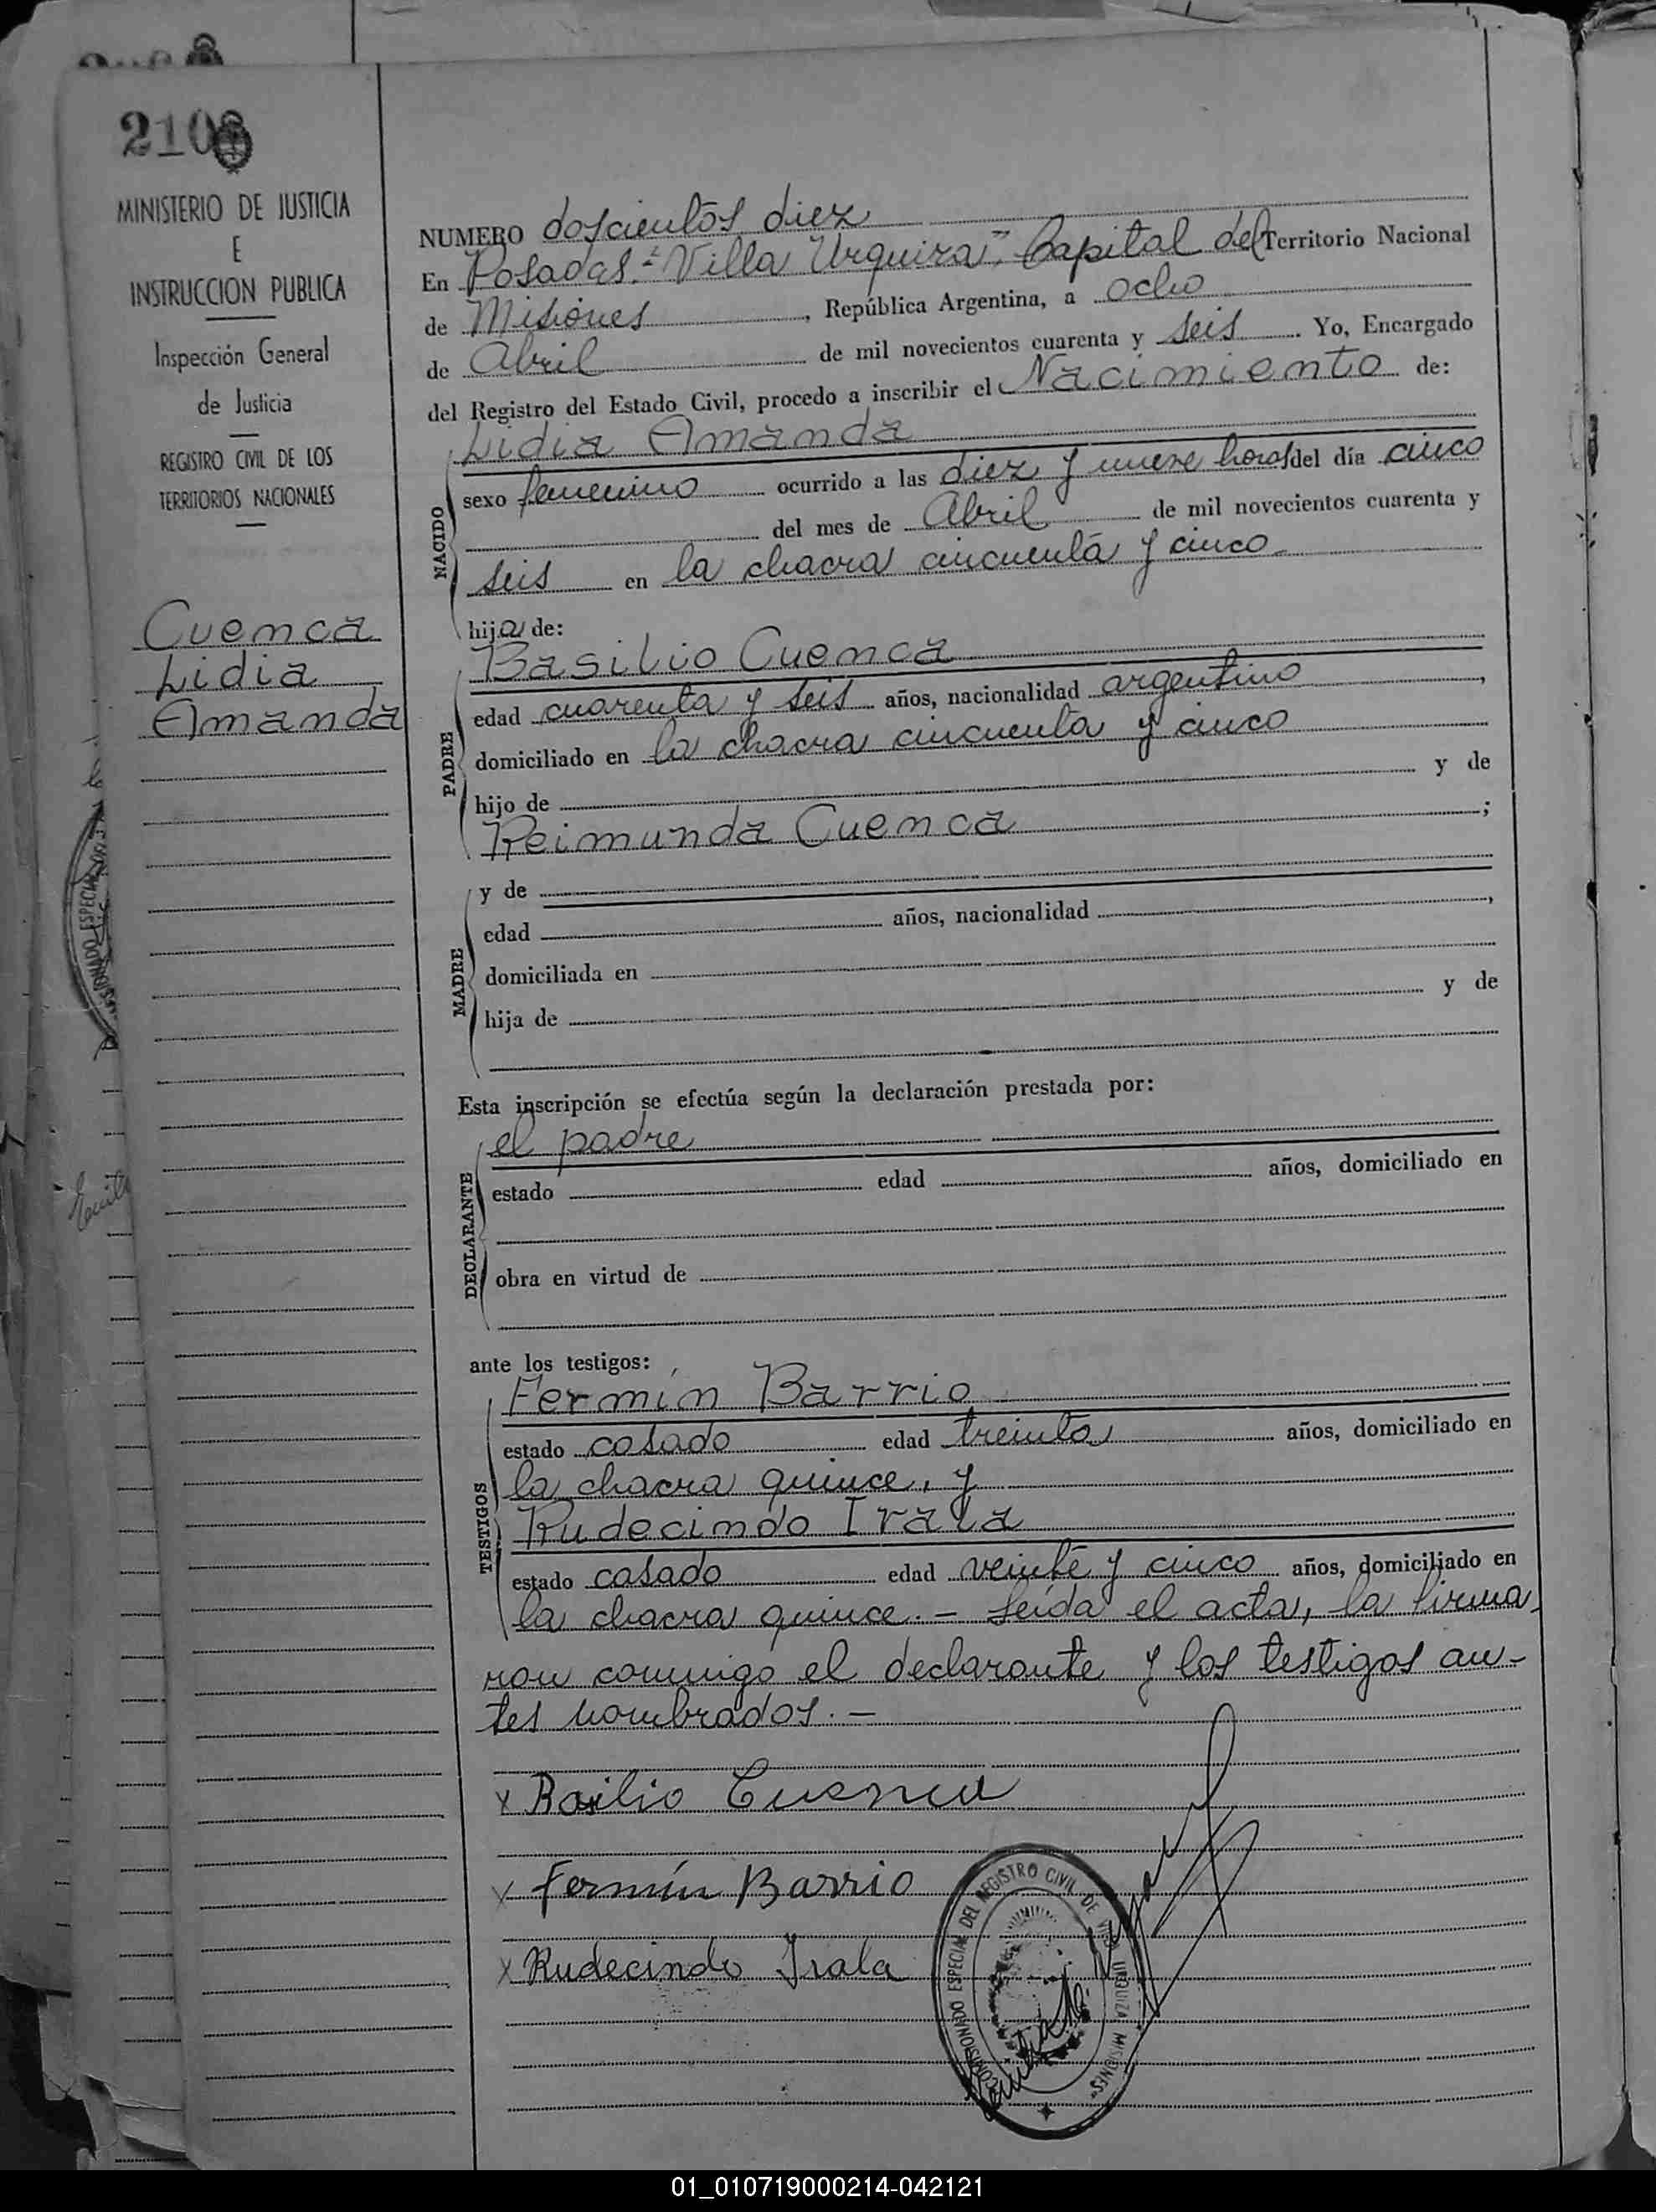 210
MINISTERIO DE JUSTICIA
E
INSTRUCCION PUBLICA
Inspección General
de Justicia
REGISTRO CIVIL DE LOS
TERRITORIOS NACIONALES
Cuenca
Lidia
Amanda
NUMERO doscientos diez
En Posadas "Villa Urquiza", Capital del Territorio Nacional
de Misiones, República Argentina, a ocho
de Abril de mil novecientos cuarenta y seis. Yo, Encargado
del Registro del Estado Civil, procedo a inscribir el Nacimiento de:
NACIDO
Lidia Amanda
sexo femenino ocurrido a las diez y nueve horas del día cinco
del mes de Abril de mil novecientos cuarenta y
seis en la chacra cincuenta y cinco
hija de:
PADRE
Basilio Cuenca
edad cuarenta y seis años, nacionalidad argentino,
domiciliado en la chacra cincuenta y cinco
hijo de y de
Reimunda Cuenca;
MADRE
y de
edad años, nacionalidad,
domiciliada en
hija de y de
Esta inscripción se efectúa según la declaración prestada por:
DECLARANTE
el padre
estado edad años, domiciliado en
obra en virtud de
ante los testigos:
TESTIGOS
Fermín Barrio
estado casado edad treinta años, domiciliado en
la chacra quince, y
Rudecindo Irala
estado casado edad veinte y cinco años, domiciliado en
la chacra quince. - Leída el acta, la firma
ron conmigo el declarante y los testigos an-
tes nombrados. -
x Basilio Cuenca
x Fermín Barrio
x Rudecindo Irala
COMISIONADO ESPECIAL DEL REGISTRO CIVIL DE VILLA URQUIZA MISIONES
01_010719000214-042121